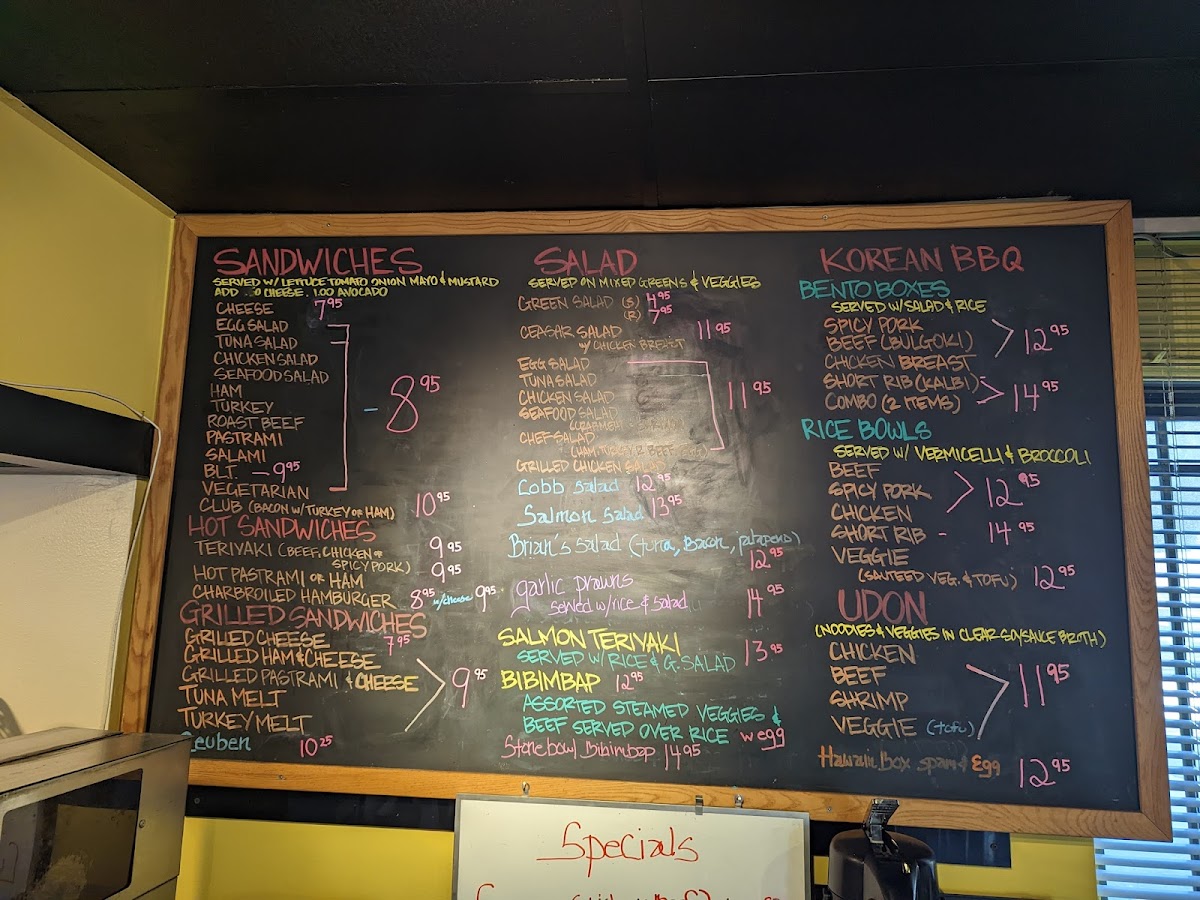 SANDWICHES
SERVED W/ LETTUCE TOMATO ONION MAYO & MUSTARD
ADD CHEESE. 1.00 AVOCADO
CHEESE 7.95
EGG SALAD
TUNA SALAD
CHICKEN SALAD
SEAFOOD SALAD
HAM
TURKEY
ROAST BEEF
PASTRAMI
SALAMI
- 8.95
B.L.T. - 9.95
VEGETARIAN
CLUB (BACON W/ TURKEY OR HAM) 10.95
HOT SANDWICHES
TERIYAKI (BEEF, CHICKEN OR 9.95
SPICY PORK) 9.95
HOT PASTRAMI OR HAM
CHARBROILED HAMBURGER 8.95 w/cheese 9.95
GRILLED SANDWICHES
GRILLED CHEESE 7.95
GRILLED HAM & CHEESE
GRILLED PASTRAMI & CHEESE 9.95
TUNA MELT
TURKEY MELT
Reuben 10.25
SALAD
SERVED ON MIXED GREENS & VEGGIES
GREEN SALAD (S) 4.95
(R) 7.95
CEASAR SALAD 11.95
W/ CHICKEN BREAST
EGG SALAD
TUNA SALAD
CHICKEN SALAD 11.95
SEAFOOD SALAD
CHEF SALAD
GRILLED CHICKEN SALAD
Cobb salad 12.95
Salmon Salad 13.95
Brian's Salad (tuna, Bacon, jalapeno)
12.95
garlic prawns
served w/rice & salad 14.95
SALMON TERIYAKI 13.95
SERVED W/ RICE & G. SALAD
BIBIMBAP 12.95
ASSORTED STEAMED VEGGIES &
BEEF SERVED OVER RICE w egg
Stonebowl Bibimbap 14.95
KOREAN BBQ
BENTO BOXES
SERVED W/ SALAD & RICE
SPICY PORK
BEEF (BULGOKI) 12.95
CHICKEN BREAST
SHORT RIB (KALBI) 14.95
COMBO (2 ITEMS)
RICE BOWLS
SERVED W/ VERMICELLI & BROCCOLI
BEEF
SPICY PORK 12.95
CHICKEN
SHORT RIB - 14.95
VEGGIE
(SAUTEED VEG. & TOFU) 12.95
UDON
(NOODLES & VEGGIES IN CLEAR SOYSAUCE BROTH)
CHICKEN
BEEF 11.95
SHRIMP
VEGGIE (tofu)
Hawaiin Box spam & Egg 12.95
Specials